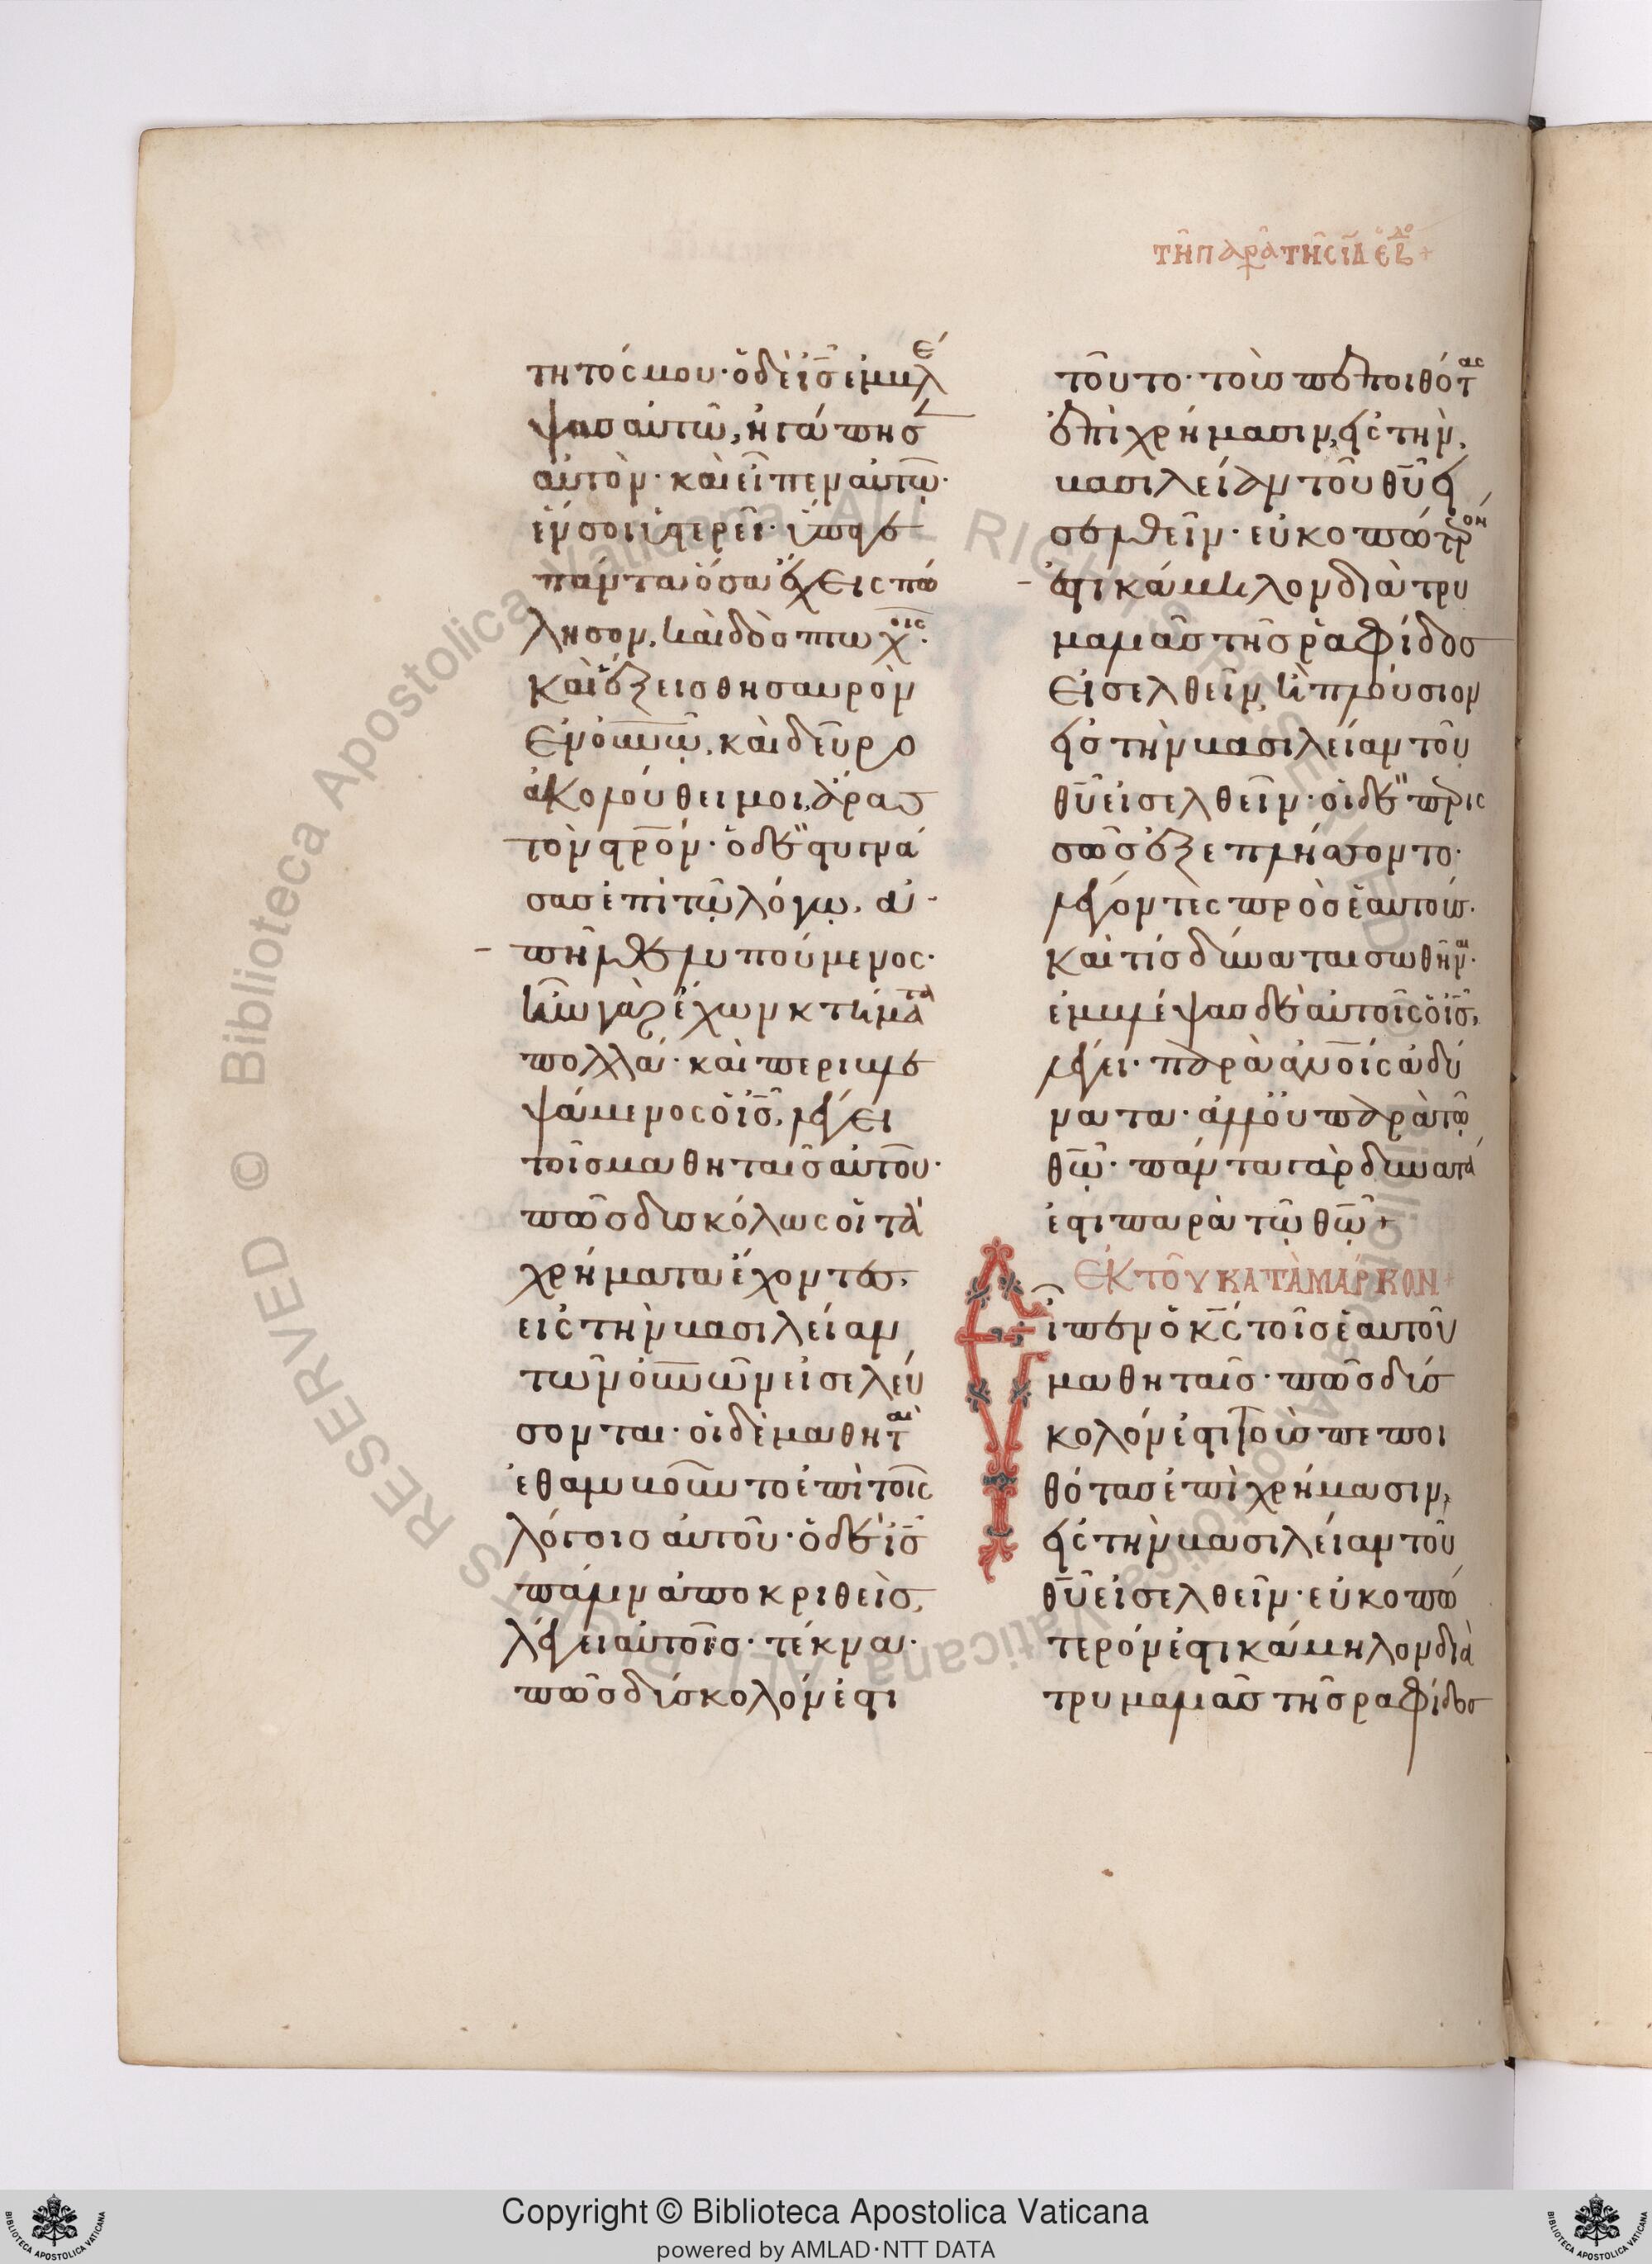 τῆ παρα τῆς ιδ εβδο +
τητός μου· ὁ δὲ ις ἐμβλέ
ψας αὐτῶ, ἠγάπησ
αὐτὸν· καὶ εἶπεν αὐτῶ·
ἕν σοι ὑστερεῖ· ὕπαγε
πάντα ὅσα ἔχεις πώ
λησον, καὶ δὸς πτωχοῖς·
καὶ ἕξεις θησαυρὸν
ἐν οὐνῶ, καὶ δεῦρο
ἀκολούθει μοι, ἄρας
τὸν στρον· ὁ δὲ στυγνά
σας ἐπὶ τῶ λόγω, ἀ
πῆλθε λυπούμενος·
ἦν γὰρ ἔχων κτήματα
πολλά· καὶ περιβλε
ψάμενος ὁ ις, λέγει
τοῖς μαθηταῖς αὐτοῦ·
πῶς δυσκόλως οἱ τὰ
χρήματα ἔχοντες,
εἰς τὴν βασιλείαν
τῶν οὐνῶν εἰσελεύ
σονται· οἱ δὲ μαθηταὶ
ἐθαμβοῦντο ἐπὶ τοῖς
λόγοις αὐτοῦ· ὁ δὲ ις
πάλιν ἀποκριθεὶς,
λέγει αὐτοῖς· τέκνα·
πῶς δύσκολόν ἐστι
τοῦτο· τοὺς πεποιθότας
ἐπὶ χρήμασιν, εἰς τὴν
βασιλείαν τοῦ θυ εἰ
σελθεῖν· εὐκοπώτερον
ἐστι κάμηλον διὰ τρυ
μαλιᾶς τῆς ῥαφίδος
εἰσελθεῖν, ἢ πλούσιον
εἰς τὴν βασιλείαν τοῦ
θυ εἰσελθεῖν· οἱ δὲ περις
σῶς ἐξεπλήσσοντο·
λέγοντες πρὸς ἑαυτούς·
καὶ τίς δύναται σωθῆναι·
ἐμβλέψας δὲ αὐτοῖς ὁ ις,
λέγει· παρὰ ἀνοις ἀδύ
νατα· ἀλλ οὐ παρὰ τῶ
θω· πάντα γὰρ δυνατά
ἐστι παρὰ τῶ θω +
ΕΚ ΤΟΥ ΚΑΤΑ ΜΑΡΚΟΝ +
Εἶπεν ὁ κς τοῖς ἑαυτοῦ
μαθηταῖς· πῶς δύσ
κολόν ἐστι τοὺς πεποι
θότας ἐπὶ χρήμασιν,
εἰς τὴν βασιλείαν τοῦ
θυ εἰσελθεῖν· εὐκοπώ
τερόν ἐστι κάμηλον διὰ
τρυμαλιᾶς τῆς ῥαφίδος
Copyright © Biblioteca Apostolica Vaticana
powered by AMLAD·NTT DATA